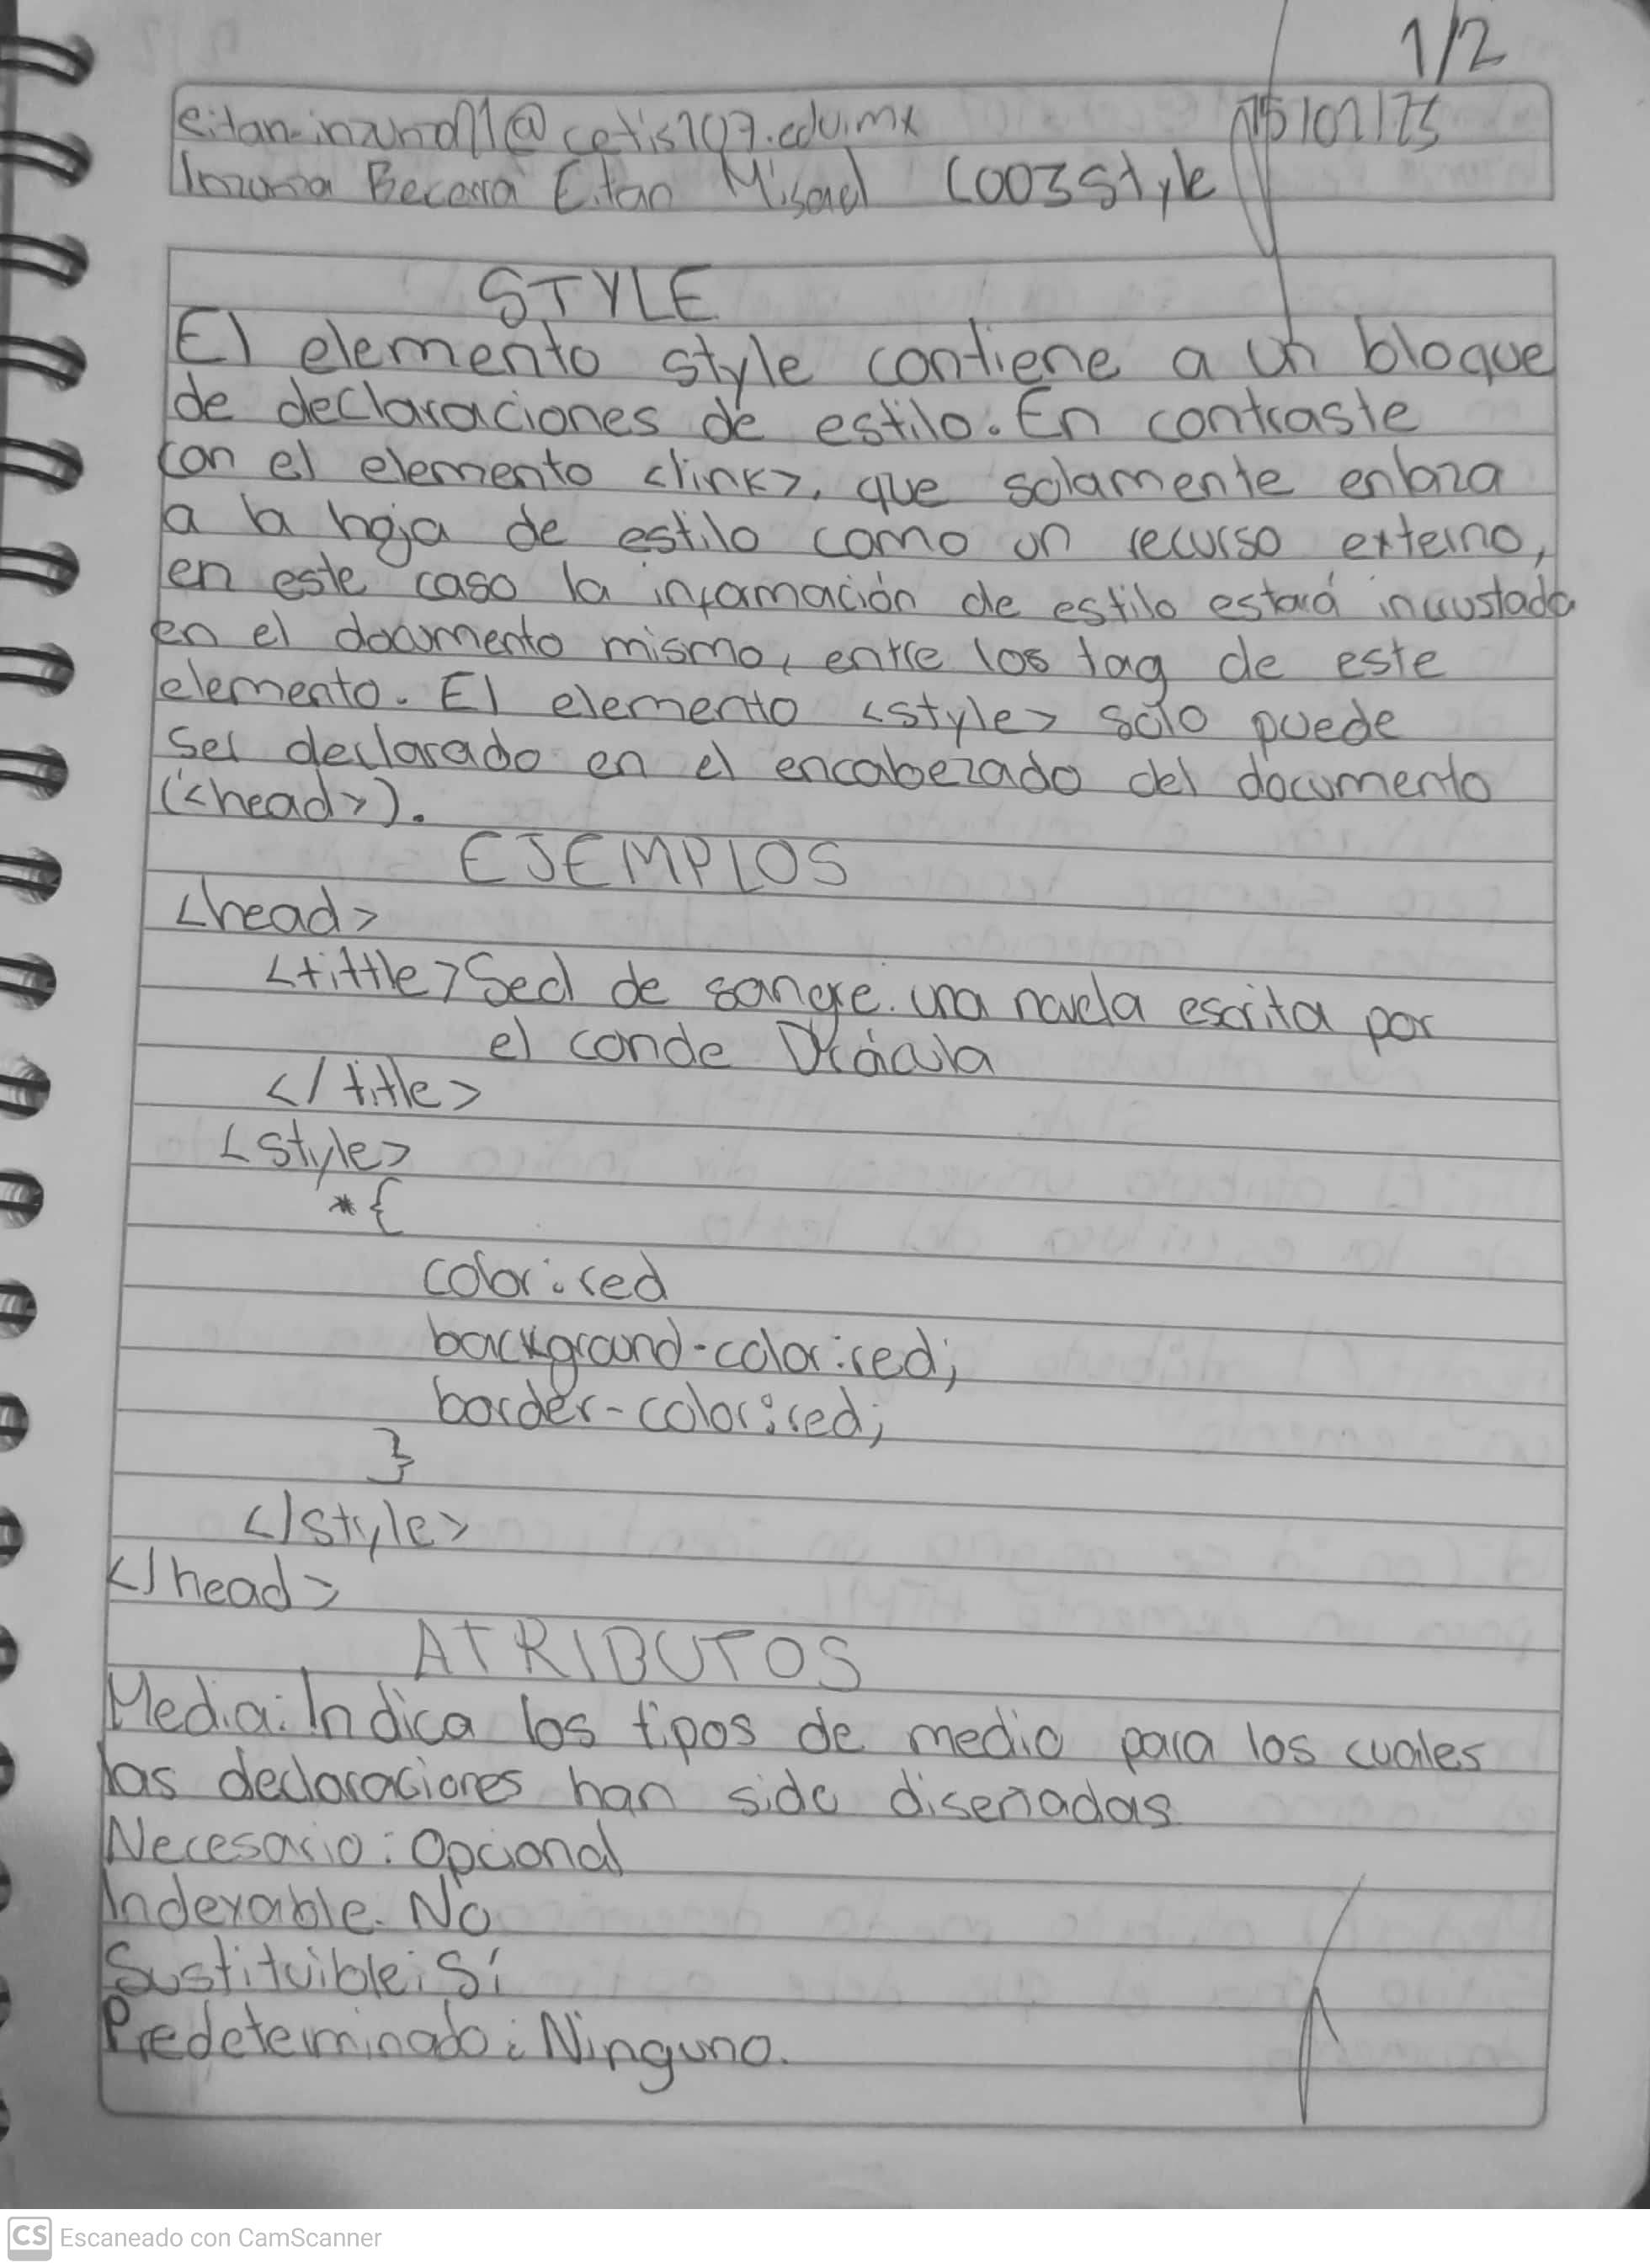 1/2
@cetis107.edu.mx
Becerra Eitan Misael C003Style
STYLE
El elemento style contiene a un bloque
de declaraciones de estilo. En contraste
con el elemento <link>, que solamente enlaza
a la hoja de estilo como un recurso externo,
en este caso la información de estilo estará incrustada
en el documento mismo, entre los tag de este
elemento. El elemento <style> sólo puede
ser declarado en el encabezado del documento
(<head>).
EJEMPLOS
<head>
<tittle>Sed de sangre. una novela escrita por
el conde Drácula
</title>
<style>
*{
color:red
background-color:red;
border-color:red;
}
</style>
</head>
ATRIBUTOS
Media: Indica los tipos de medio para los cuales
las declaraciones han sido diseñadas
Necesario: Opcional
Indexable. No
Sustituible: Sí
Predeterminado: Ninguno.
CS Escaneado con CamScanner